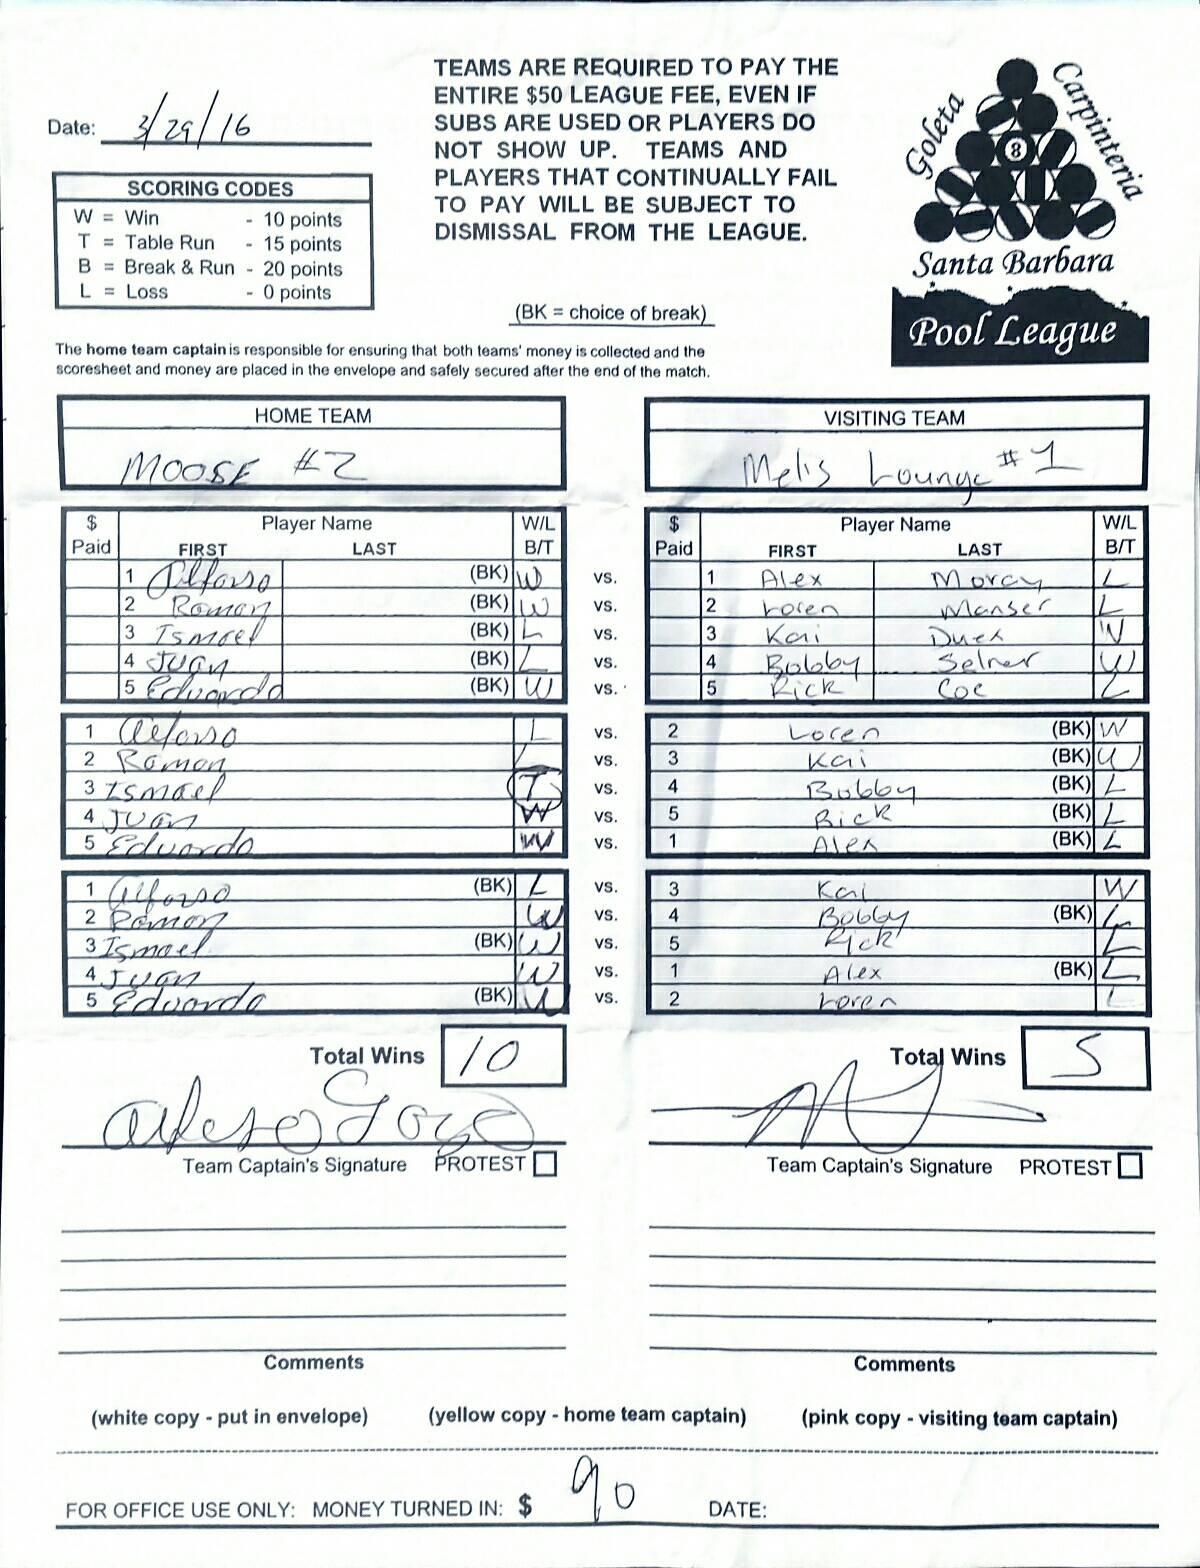 TEAMS ARE REQUIRED TO PAY THE
ENTIRE $50 LEAGUE FEE, EVEN IF
SUBS ARE USED OR PLAYERS DO
NOT SHOW UP. TEAMS AND
PLAYERS THAT CONTINUALLY FAIL
TO PAY WILL BE SUBJECT TO
DISMISSAL FROM THE LEAGUE.
Goleta
Carpinteria
8
Santa Barbara
Pool League
Date: 3/29/16
SCORING CODES
W = Win - 10 points
T = Table Run - 15 points
B = Break & Run - 20 points
L = Loss - 0 points
(BK = choice of break)
The home team captain is responsible for ensuring that both teams' money is collected and the
scoresheet and money are placed in the envelope and safely secured after the end of the match.
HOME TEAM VISITING TEAM
MOOSE #2 Mel's Lounge #1
$ Player Name W/L $ Player Name W/L
Paid FIRST LAST B/T Paid FIRST LAST B/T
1 Alfonso (BK) W vs. 1 Alex L
2 Ramon (BK) W vs. 2 Loren Manser L
3 Ismael (BK) L vs. 3 Kai Duex W
4 Juan (BK) L vs. 4 Bobby Selner W
5 Eduardo (BK) W vs. 5 Rick Coe L
1 Alfonso L vs. 2 Loren (BK) W
2 Ramon vs. 3 Kai (BK) W
3 Ismael T vs. 4 Bobby (BK) L
4 Juan W vs. 5 Rick (BK) L
5 Eduardo W vs. 1 Alex (BK) L
1 Alfonso (BK) L vs. 3 Kai W
2 Ramon W vs. 4 Bobby (BK) L
3 Ismael (BK) W vs. 5 Rick L
4 Juan W vs. 1 Alex (BK) L
5 Eduardo (BK) W vs. 2 Loren L
Total Wins 10 Total Wins 5
Team Captain's Signature PROTEST Team Captain's Signature PROTEST
Comments Comments
(white copy - put in envelope) (yellow copy - home team captain) (pink copy - visiting team captain)
FOR OFFICE USE ONLY: MONEY TURNED IN: $ 90 DATE: